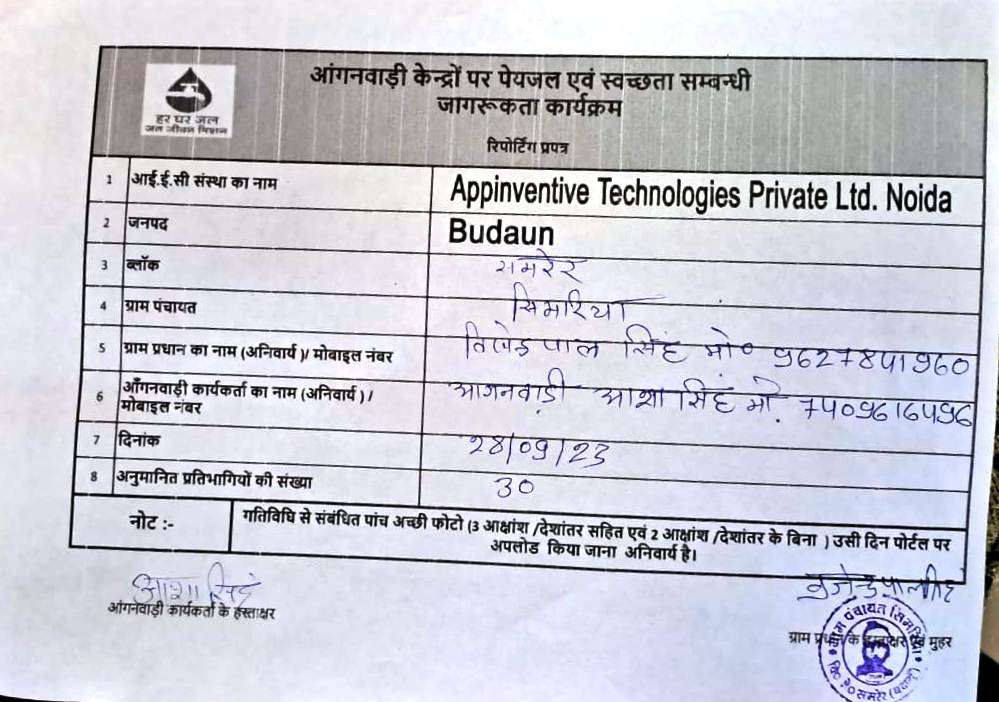 हर घर जल
जल जीवन मिशन
आंगनवाड़ी केन्द्रों पर पेयजल एवं स्वच्छता सम्बन्धी
जागरूकता कार्यक्रम
रिपोर्टिंग प्रपत्र
1 आई.ई.सी संस्था का नाम Appinventive Technologies Private Ltd. Noida
2 जनपद Budaun
3 ब्लॉक समरेर
4 ग्राम पंचायत सिमरिया
5 ग्राम प्रधान का नाम (अनिवार्य)/ मोबाइल नंबर पाल सिंह मो०
6 आँगनवाड़ी कार्यकर्ता का नाम (अनिवार्य ) / मोबाइल नंबर आगनवाड़ी आशा सिंह मो. 7409616496
7 दिनांक 28/09/23
8 अनुमानित प्रतिभागियों की संख्या 30
नोट :- गतिविधि से संबंधित पांच अच्छी फोटो (3 आक्षांश /देशांतर सहित एवं 2 आक्षांश /देशांतर के बिना ) उसी दिन पोर्टल पर
अपलोड किया जाना अनिवार्य है।
आशा सिंह
आंगनवाड़ी कार्यकर्ता के हस्ताक्षर
ग्राम प्रधान के हस्ताक्षर एवं मुहर
ग्राम पंचायत सिमरिया
समरेर (बदायूं)